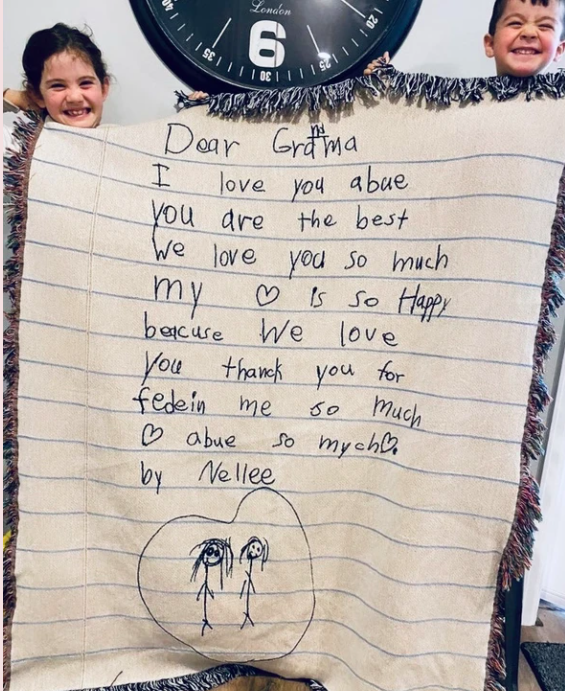 London
40
35
6
30
25
20
Dear Grandma
I love you abue
you are the best
We love you so much
my ♡ is so Happy
beacuse We love
you thanck you for
fedein me so much
♡ abue so mych♡.
by Nellee